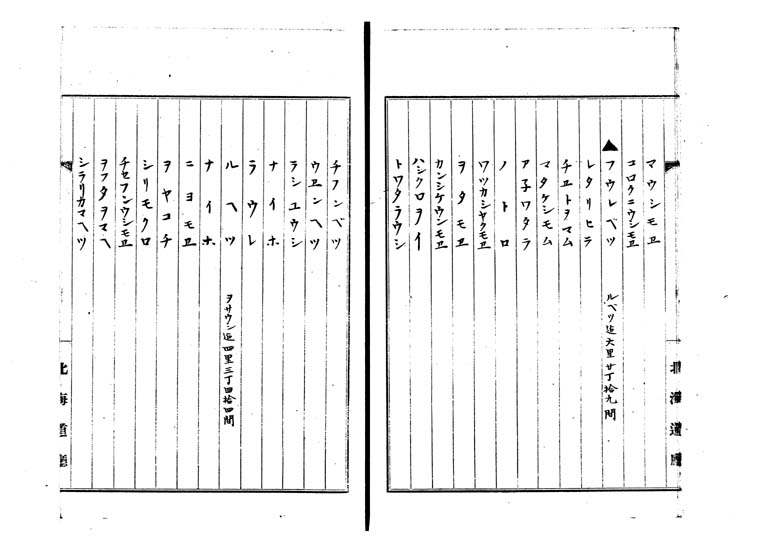 マウシモヱ
コロクニウシモヱ
▲フウレベツ ルベツ迄六里廿丁拾九間
レタリヒラ
チヱトヲマム
マタケシモム
ア子ワタラ
ノトロ
ワツカシヤクモヱ
ヲタモヱ
カンシケウシモヱ
ハシクロヲイ
トワタラウシ
チフンベツ
ウヱンヘツ
ラシユウシ
ナイホ
ラウレ
ルヘツ ヲサウシ迄四里三丁四拾四間
ナイホ
ニヨモヱ
ヲヤコチ
シリモクロ
チセフンウシモヱ
ヲフタヲマヘ
シラリカマヘツ
北海道廳
北海道廳